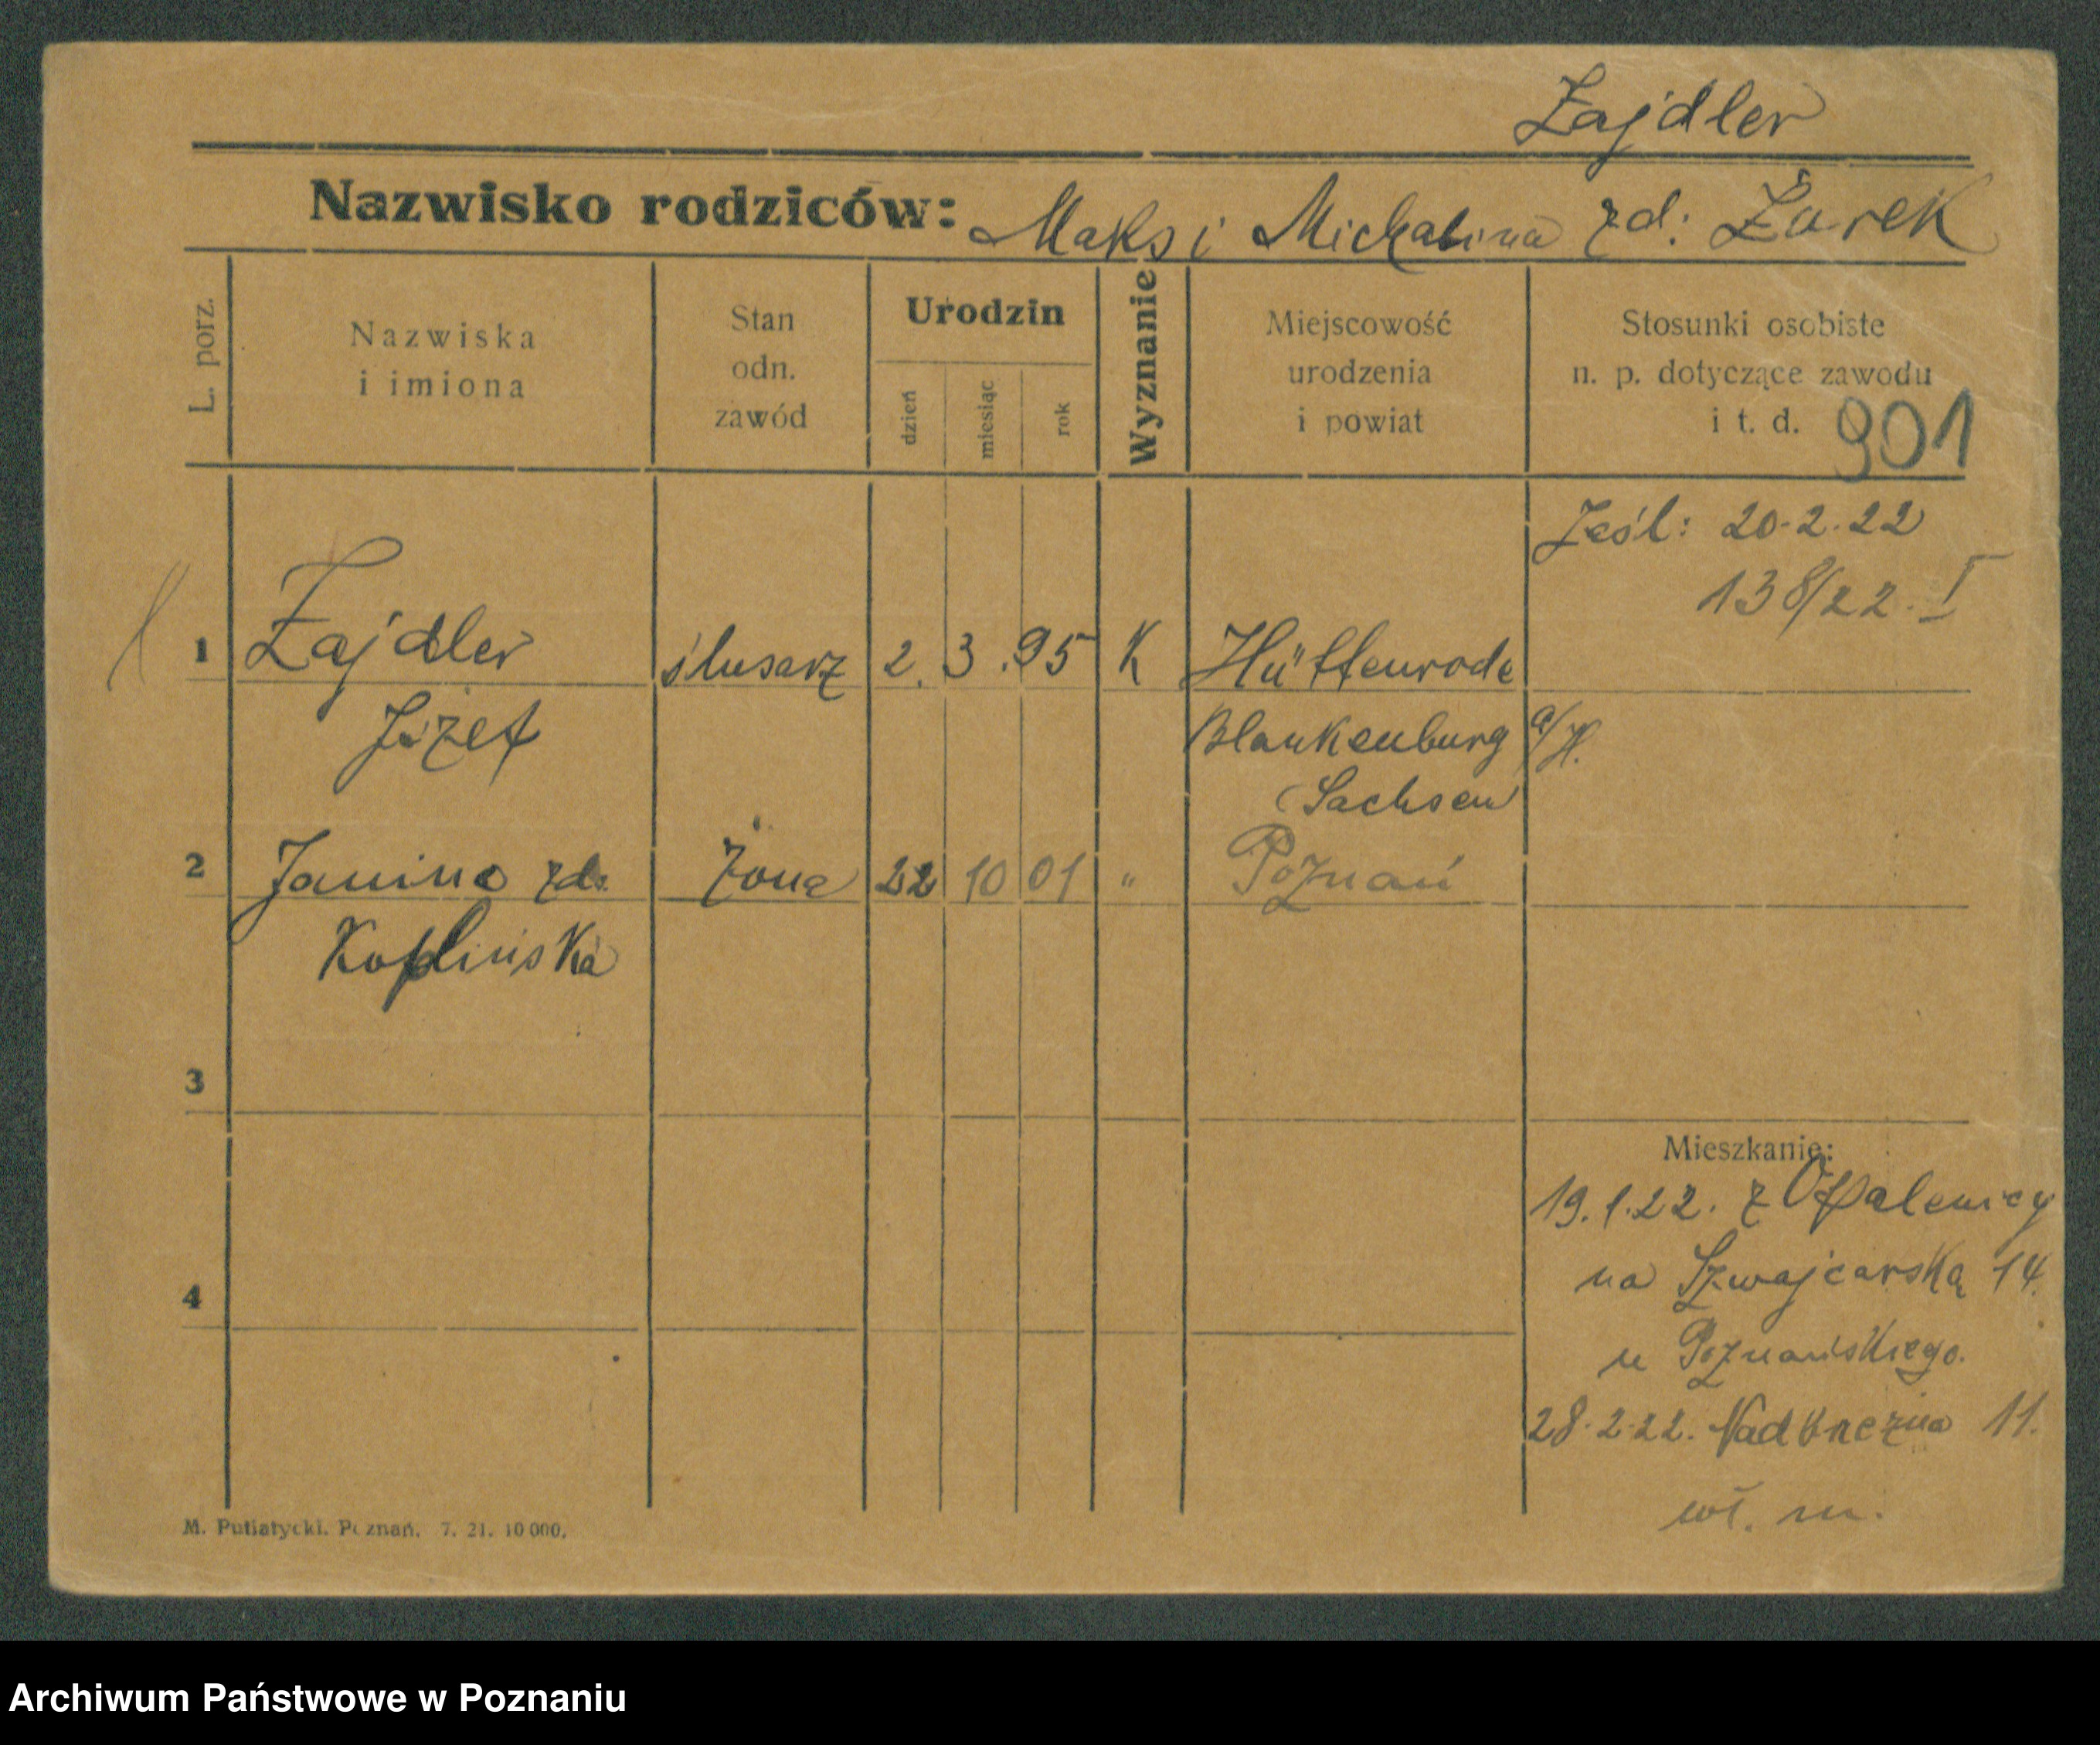 Zajdler
Nazwisko rodziców: Maks i Michalina zd: Żurek
L. porz.
Nazwiska
i imiona
Stan
odn.
zawód
Urodzin
dzień
miesiąc
rok
Wyznanie
Miejscowość
urodzenia
i powiat
Stosunki osobiste
n. p. dotyczące zawodu
i t. d. 901
20.2.22
138/22. I
1 Zajdler ślusarz 2. 3. 95 K Hüttenrode
Józef Blankenburg a/H.
Sachsen
2 Janina zd. żona 22 10 01 " Poznań
Koplińska
3
Mieszkanie:
19.1.22. z Opalenicy
na Szwajcarską 14.
4
u Poznańskiego.
28.2.22. Nadbrzeżna 11.
wł. m.
M. Putiatycki. Poznań. 7. 21. 10 000.
Archiwum Państwowe w Poznaniu